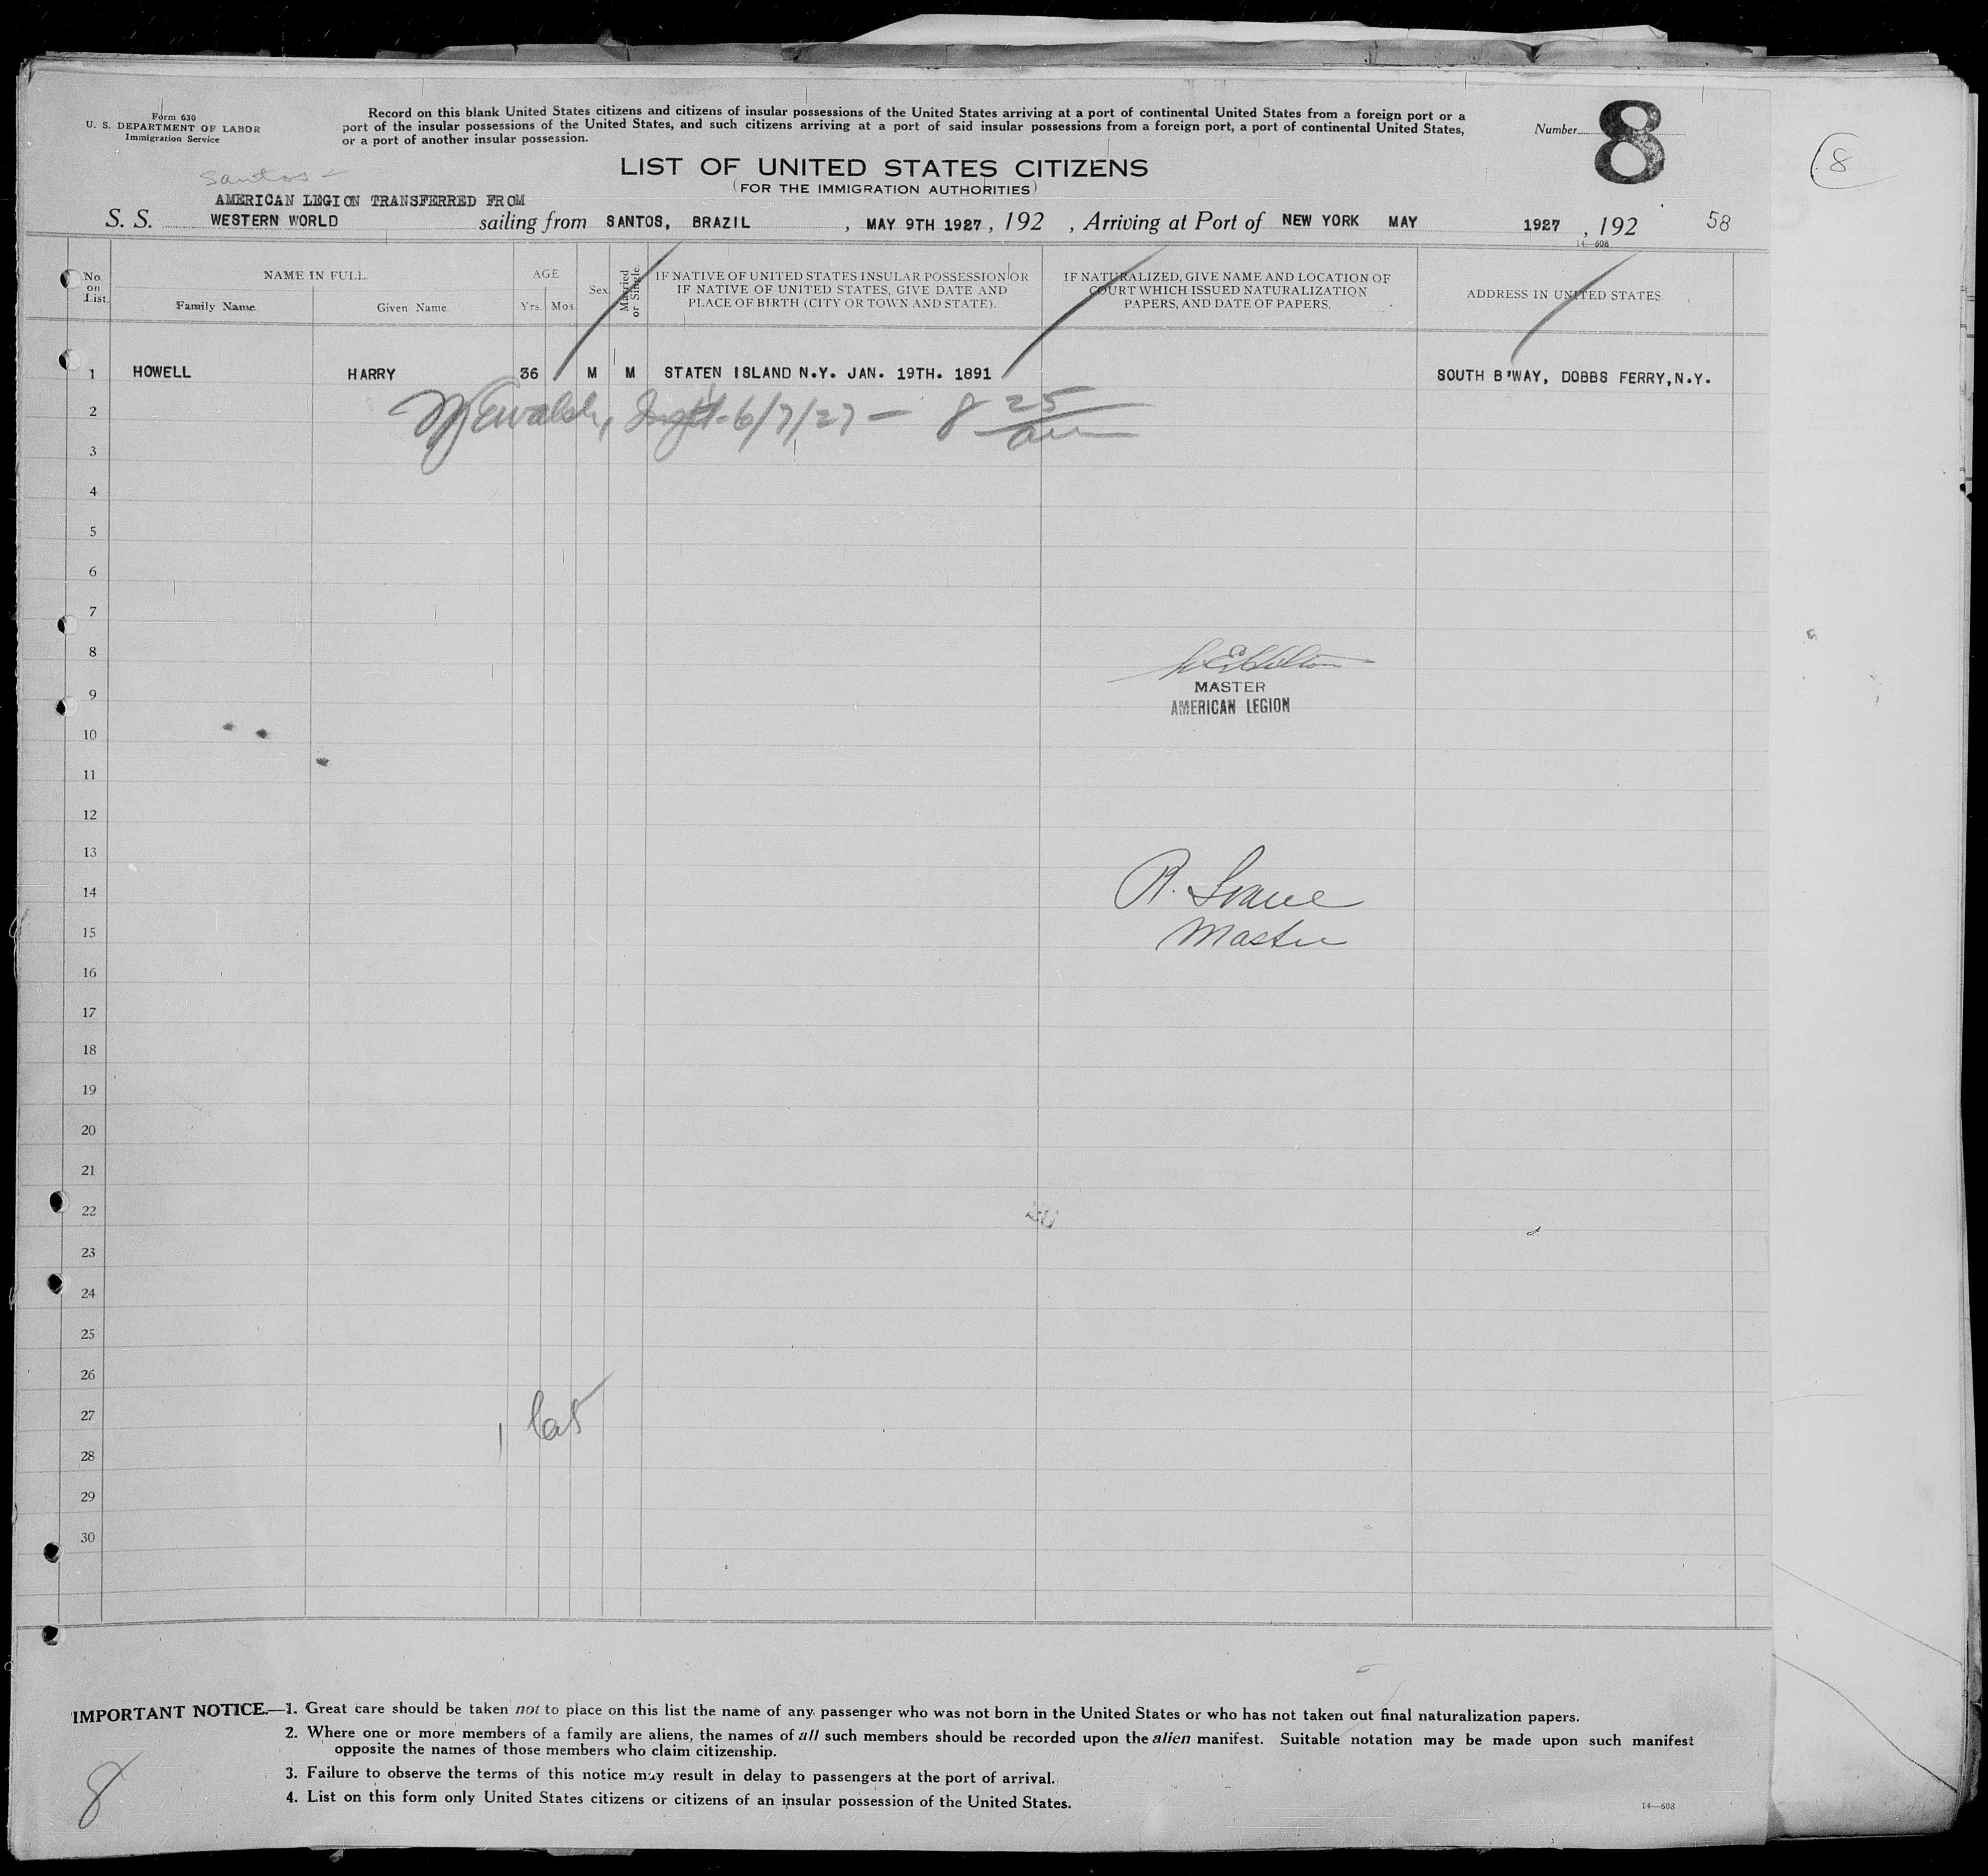 Form 630
U. S. DEPARTMENT OF LABOR
Immigration Service
Record on this blank United States citizens and citizens of insular possessions of the United States arriving at a port of continental United States from a foreign port or a
port of the insular possessions of the United States, and such citizens arriving at a port of said insular possessions from a foreign port, a port of continental United States,
or a port of another insular possession.
Number 8
(8
LIST OF UNITED STATES CITIZENS
(FOR THE IMMIGRATION AUTHORITIES)
Santos -
AMERICAN LEGION TRANSFERRED FROM
S. S. WESTERN WORLD sailing from SANTOS, BRAZIL , MAY 9TH 1927 , 192 , Arriving at Port of NEW YORK MAY 1927 , 192 58
14-608
No. on List.
NAME IN FULL.
Family Name
Given Name
AGE
Yrs. Mos.
Sex
Married or Single.
IF NATIVE OF UNITED STATES INSULAR POSSESSION OR
IF NATIVE OF UNITED STATES, GIVE DATE AND
PLACE OF BIRTH (CITY OR TOWN AND STATE).
IF NATURALIZED, GIVE NAME AND LOCATION OF
COURT WHICH ISSUED NATURALIZATION
PAPERS, AND DATE OF PAPERS.
ADDRESS IN UNITED STATES.
1 HOWELL HARRY 36 M M STATEN ISLAND N.Y. JAN. 19TH. 1891 SOUTH B'WAY, DOBBS FERRY, N.Y.
2 6/7/27 - 8 25
3
4
5
6
7
8
9 MASTER
AMERICAN LEGION
10
11
12
13
14 R.
15 Master
16
17
18
19
20
21
22
23
24
25
26
27 1
28
29
30
IMPORTANT NOTICE.—1. Great care should be taken not to place on this list the name of any passenger who was not born in the United States or who has not taken out final naturalization papers.
2. Where one or more members of a family are aliens, the names of all such members should be recorded upon the alien manifest. Suitable notation may be made upon such manifest
opposite the names of those members who claim citizenship.
3. Failure to observe the terms of this notice may result in delay to passengers at the port of arrival.
4. List on this form only United States citizens or citizens of an insular possession of the United States.
8
14—608